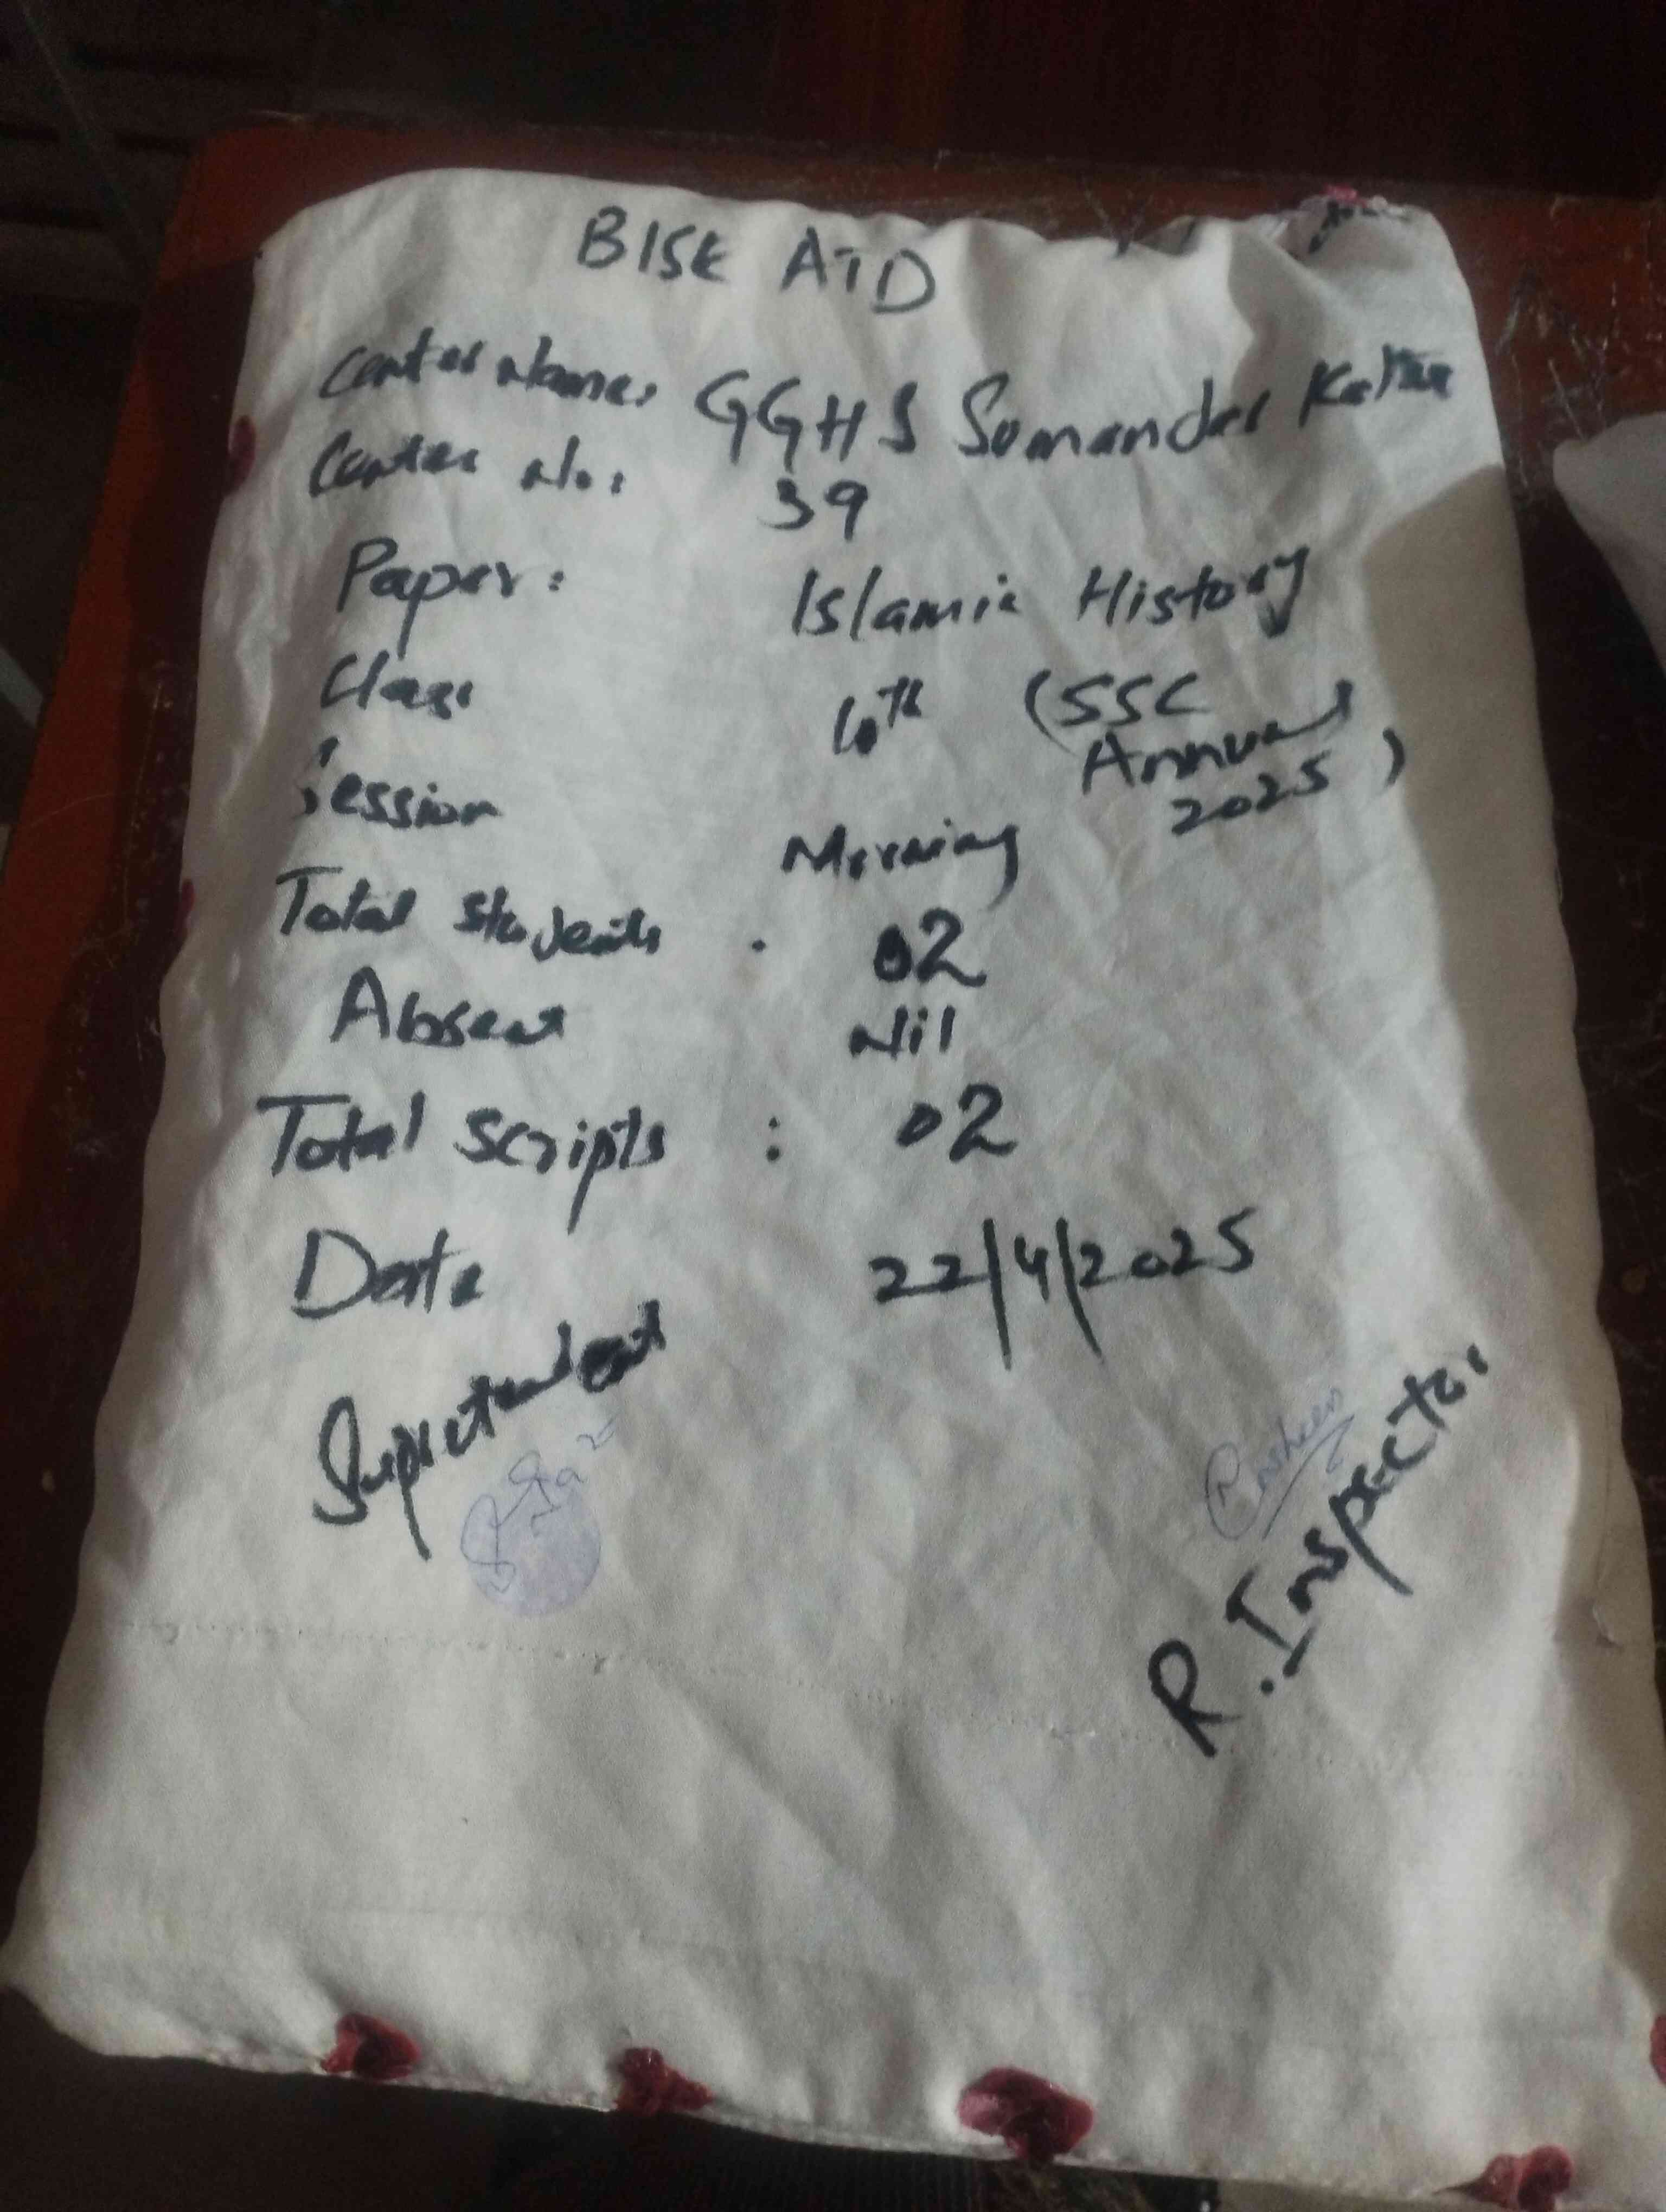 BISE ATD
Center Name: GGHS Somander Katha
Center No: 39
Paper: Islamic History
Class 10th (SSC Annual 2025)
Session Morning
Total students . 02
Absent Nil
Total scripts : 02
Date 22/4/2025
Supretendent
R. Inspector